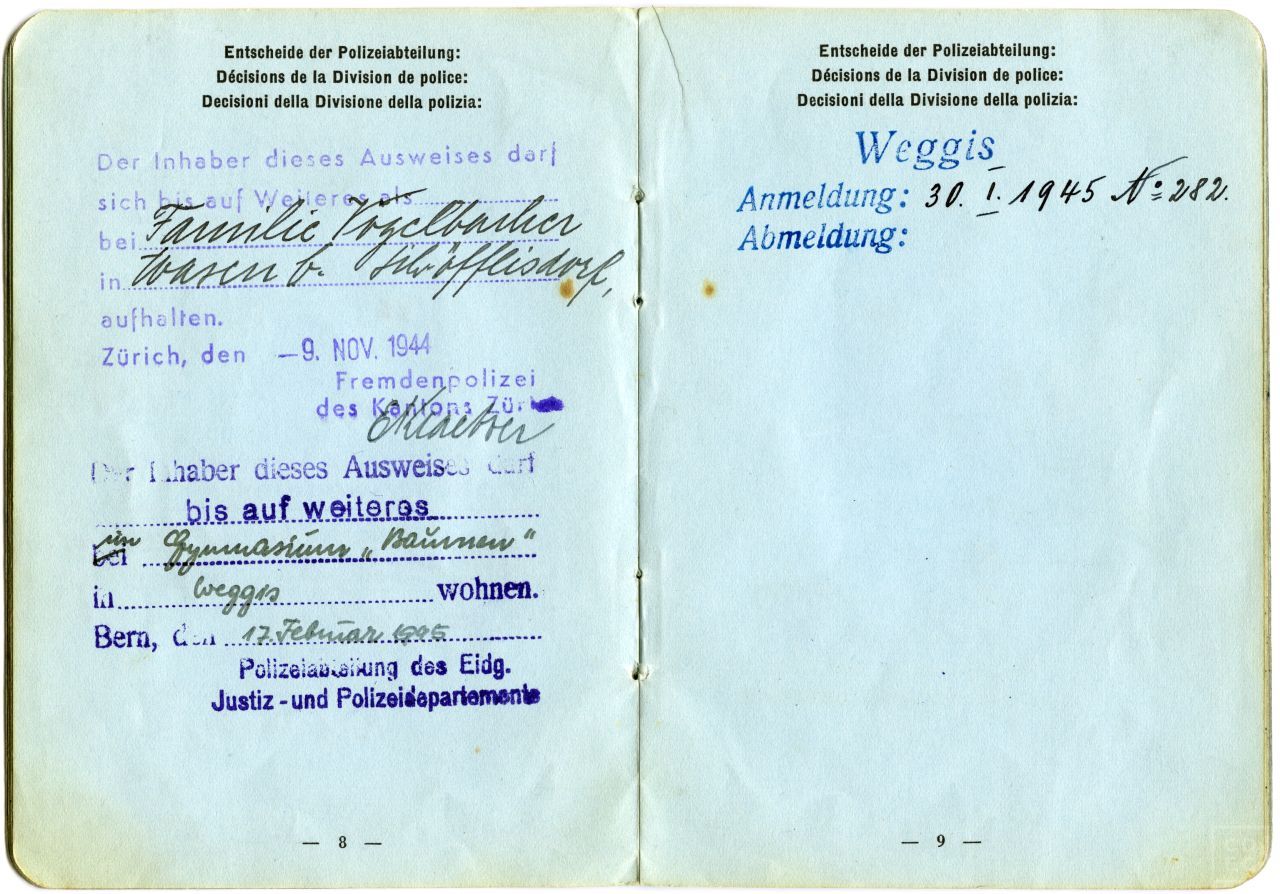 Entscheide der Polizeiabteilung:
Décisions de la Division de police:
Decisioni della Divisione della polizia:
Der Inhaber dieses Ausweises darf
sich bis auf Weiteres als
bei Familie Vögelbacher
in Wasen b. Schöfflisdorf,
aufhalten.
Zürich, den -9. NOV. 1944
Fremdenpolizei
des Kantons Zürich
Der Inhaber dieses Ausweises darf
bis auf weiteres
bei im Gymnasium „Baumen"
in Weggis wohnen.
Bern, den 17. Februar 1945
Polizeiabteilung des Eidg.
Justiz-und Polizeidepartements
— 8 —
Entscheide der Polizeiabteilung:
Décisions de la Division de police:
Decisioni della Divisione della polizia:
Weggis
Anmeldung: 30. I. 1945 No 282.
Abmeldung:
— 9 —